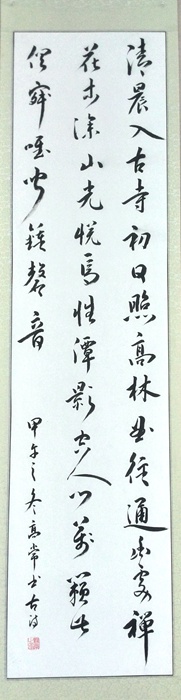 清晨入古寺初日照高林曲徑通幽處禪
花木深山光悦鳥性潭影空人心萬籟此
俱寂唯聞鍾磬音
甲午之冬高常书古诗